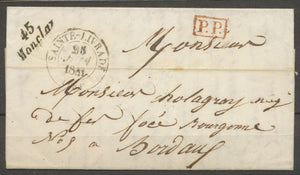 45
Monclar
SAINTE-LIVRADE
28
P.P.
Monsieur
Monsieur holagray
de fer foce Bourgogne
No 9 a Bordaux